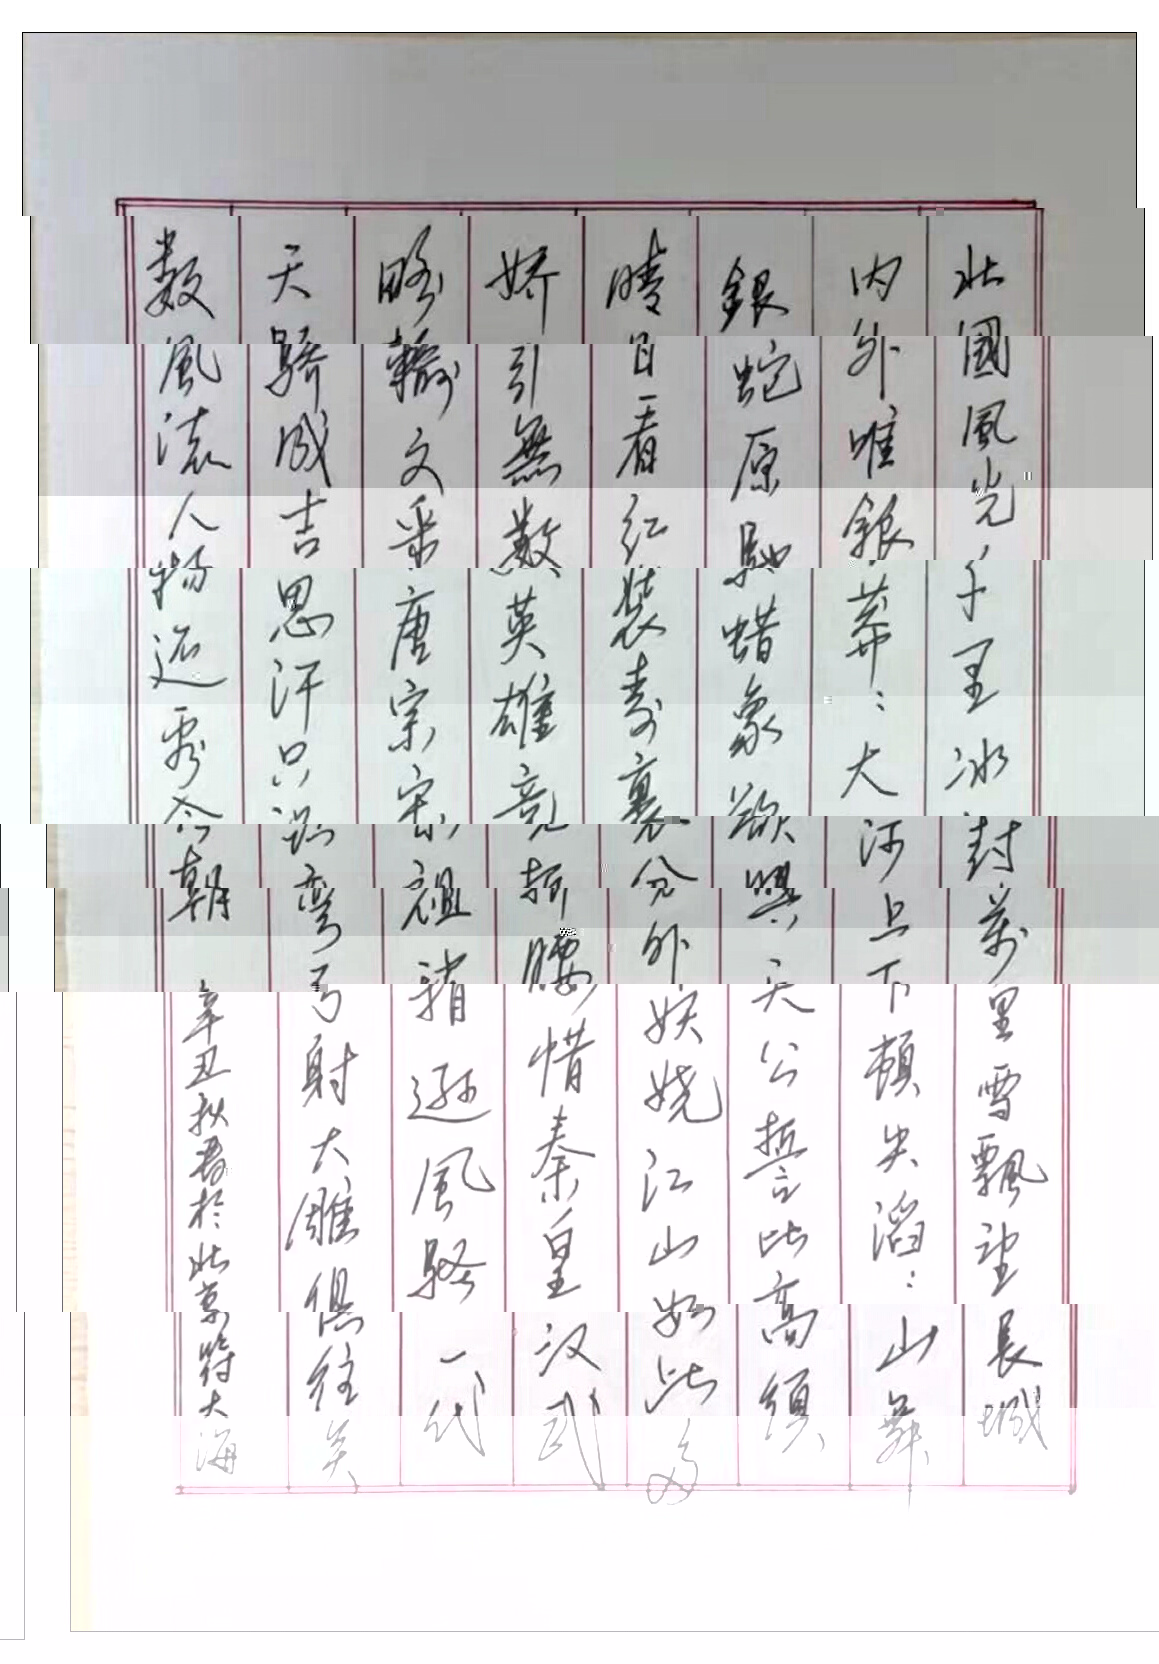 北國風光千里冰封萬里雪飄望長城
内外唯銀莽：大河上下頓失滔：山舞
銀蛇原馳蜡象欲與天公誓比高須
晴日看红装素裹分外妖娆江山如此多
娇引無數英雄竞折腰惜秦皇汉武
略輸文采唐宗宋祖稍遜風騷一代
天驕成吉思汗只识弯弓射大雕俱往矣
数風流人物还看今朝
辛丑秋書於北京符大海